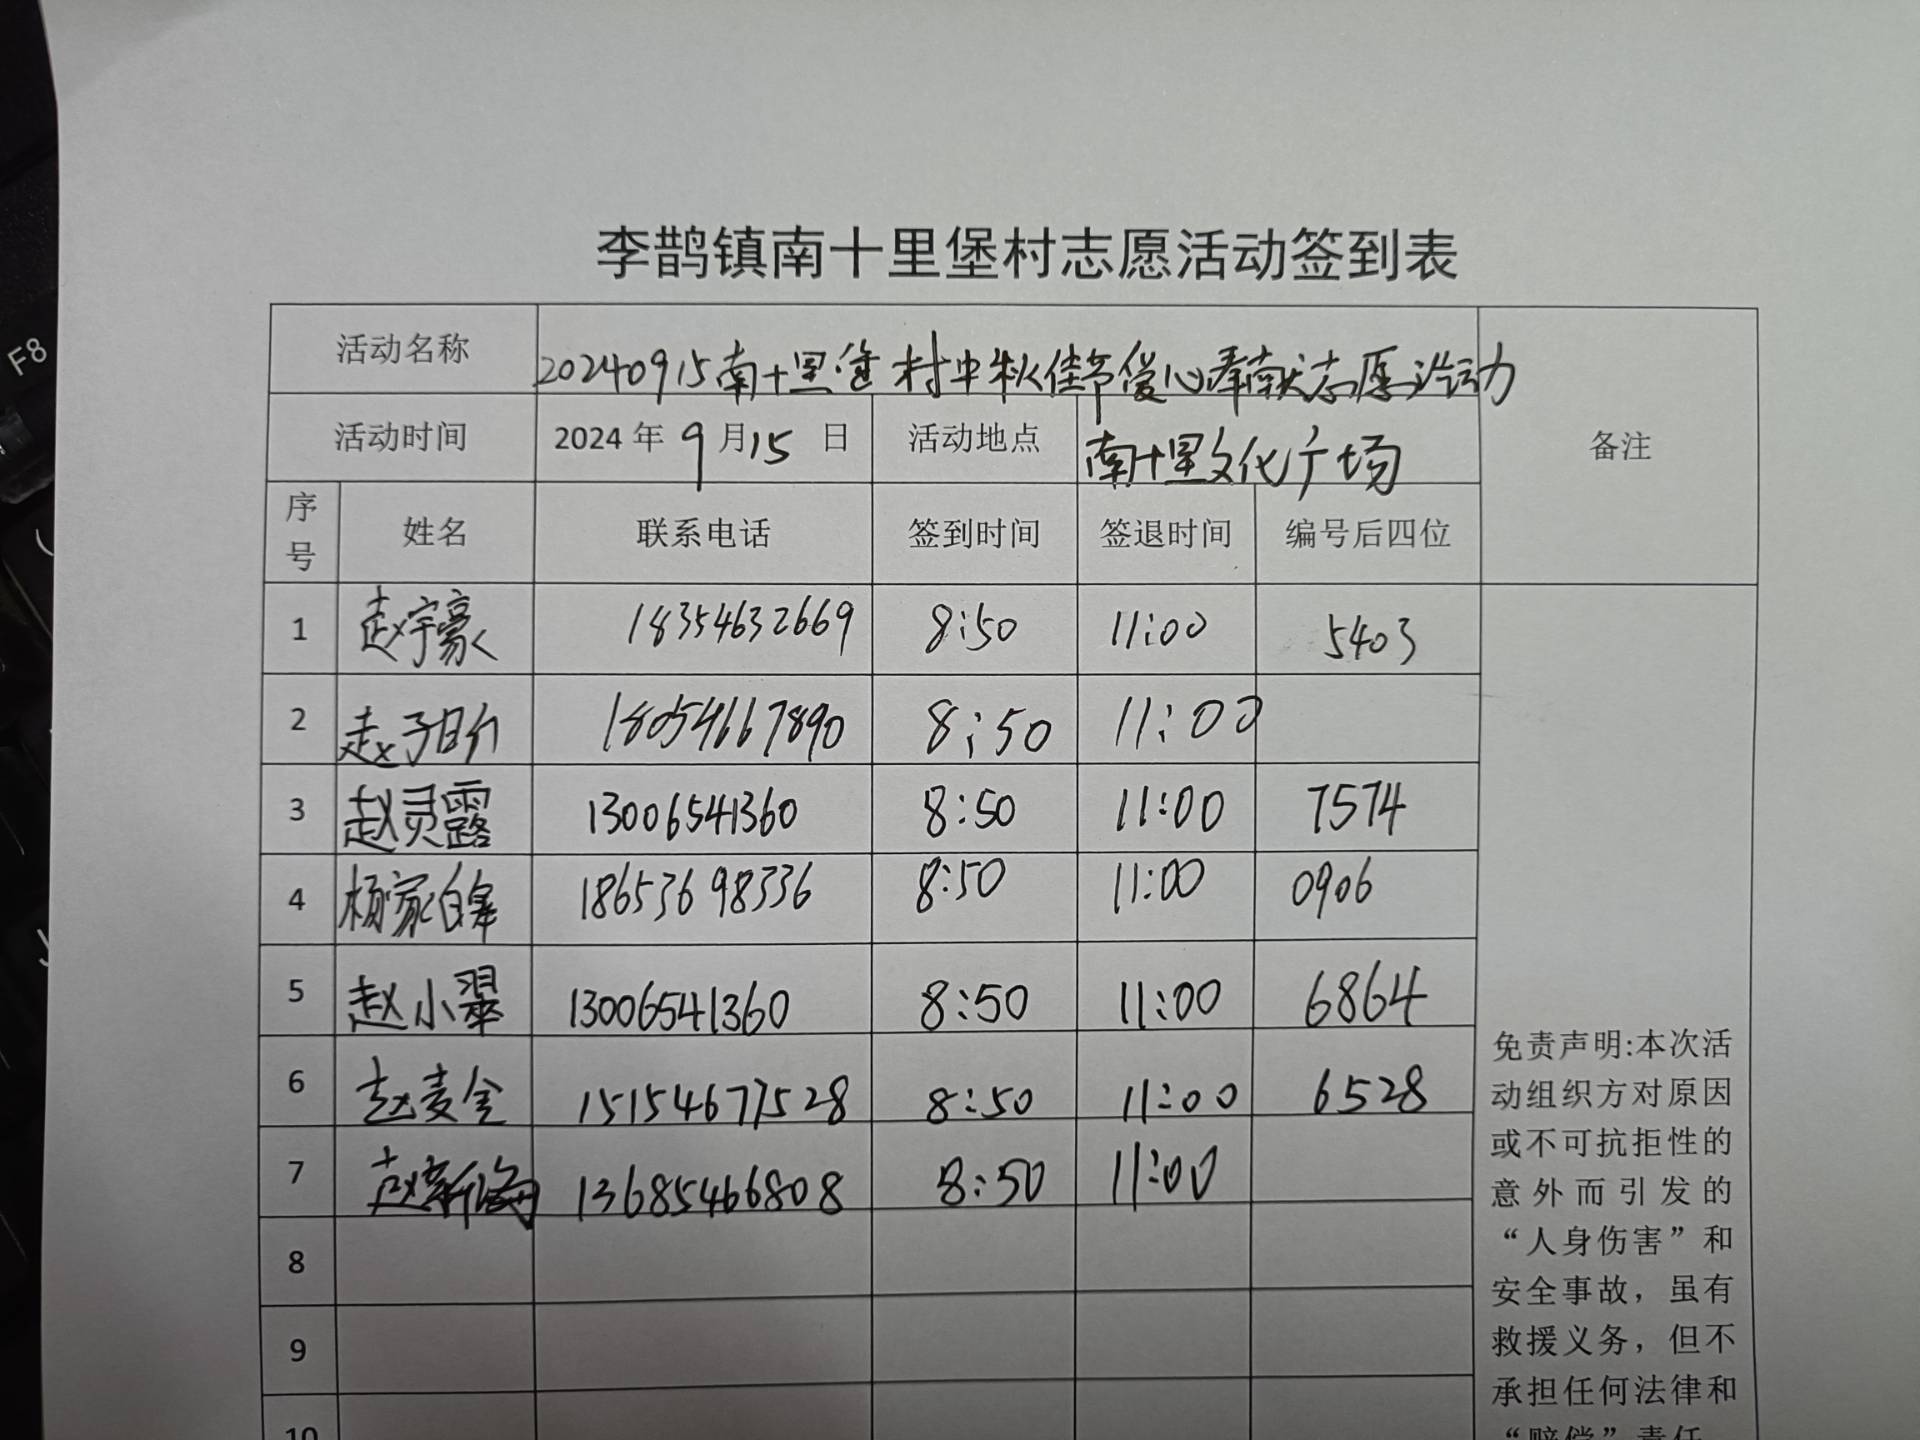 F8
李鹊镇南十里堡村志愿活动签到表
活动名称 20240915南十里堡村中秋佳节爱心奉献志愿活动
备注
活动时间 2024年9月15日 活动地点 南十里文化广场
序号 姓名 联系电话 签到时间 签退时间 编号后四位
1 赵宇豪 18354632669 8:50 11:00 5403
2 赵子 18054667890 8:50 11:00
3 赵灵露 13006541360 8:50 11:00 7574
4 杨家 18653698336 8:50 11:00 0906
5 赵小翠 13006541360 8:50 11:00 6864
6 赵麦全 15154677528 8:50 11:00 6528
7 赵新海 13685466808 8:50 11:00
8
9
10
免责声明:本次活
动组织方对原因
或不可抗拒性的
意外而引发的
“人身伤害”和
安全事故，虽有
救援义务，但不
承担任何法律和
“赔偿”责任